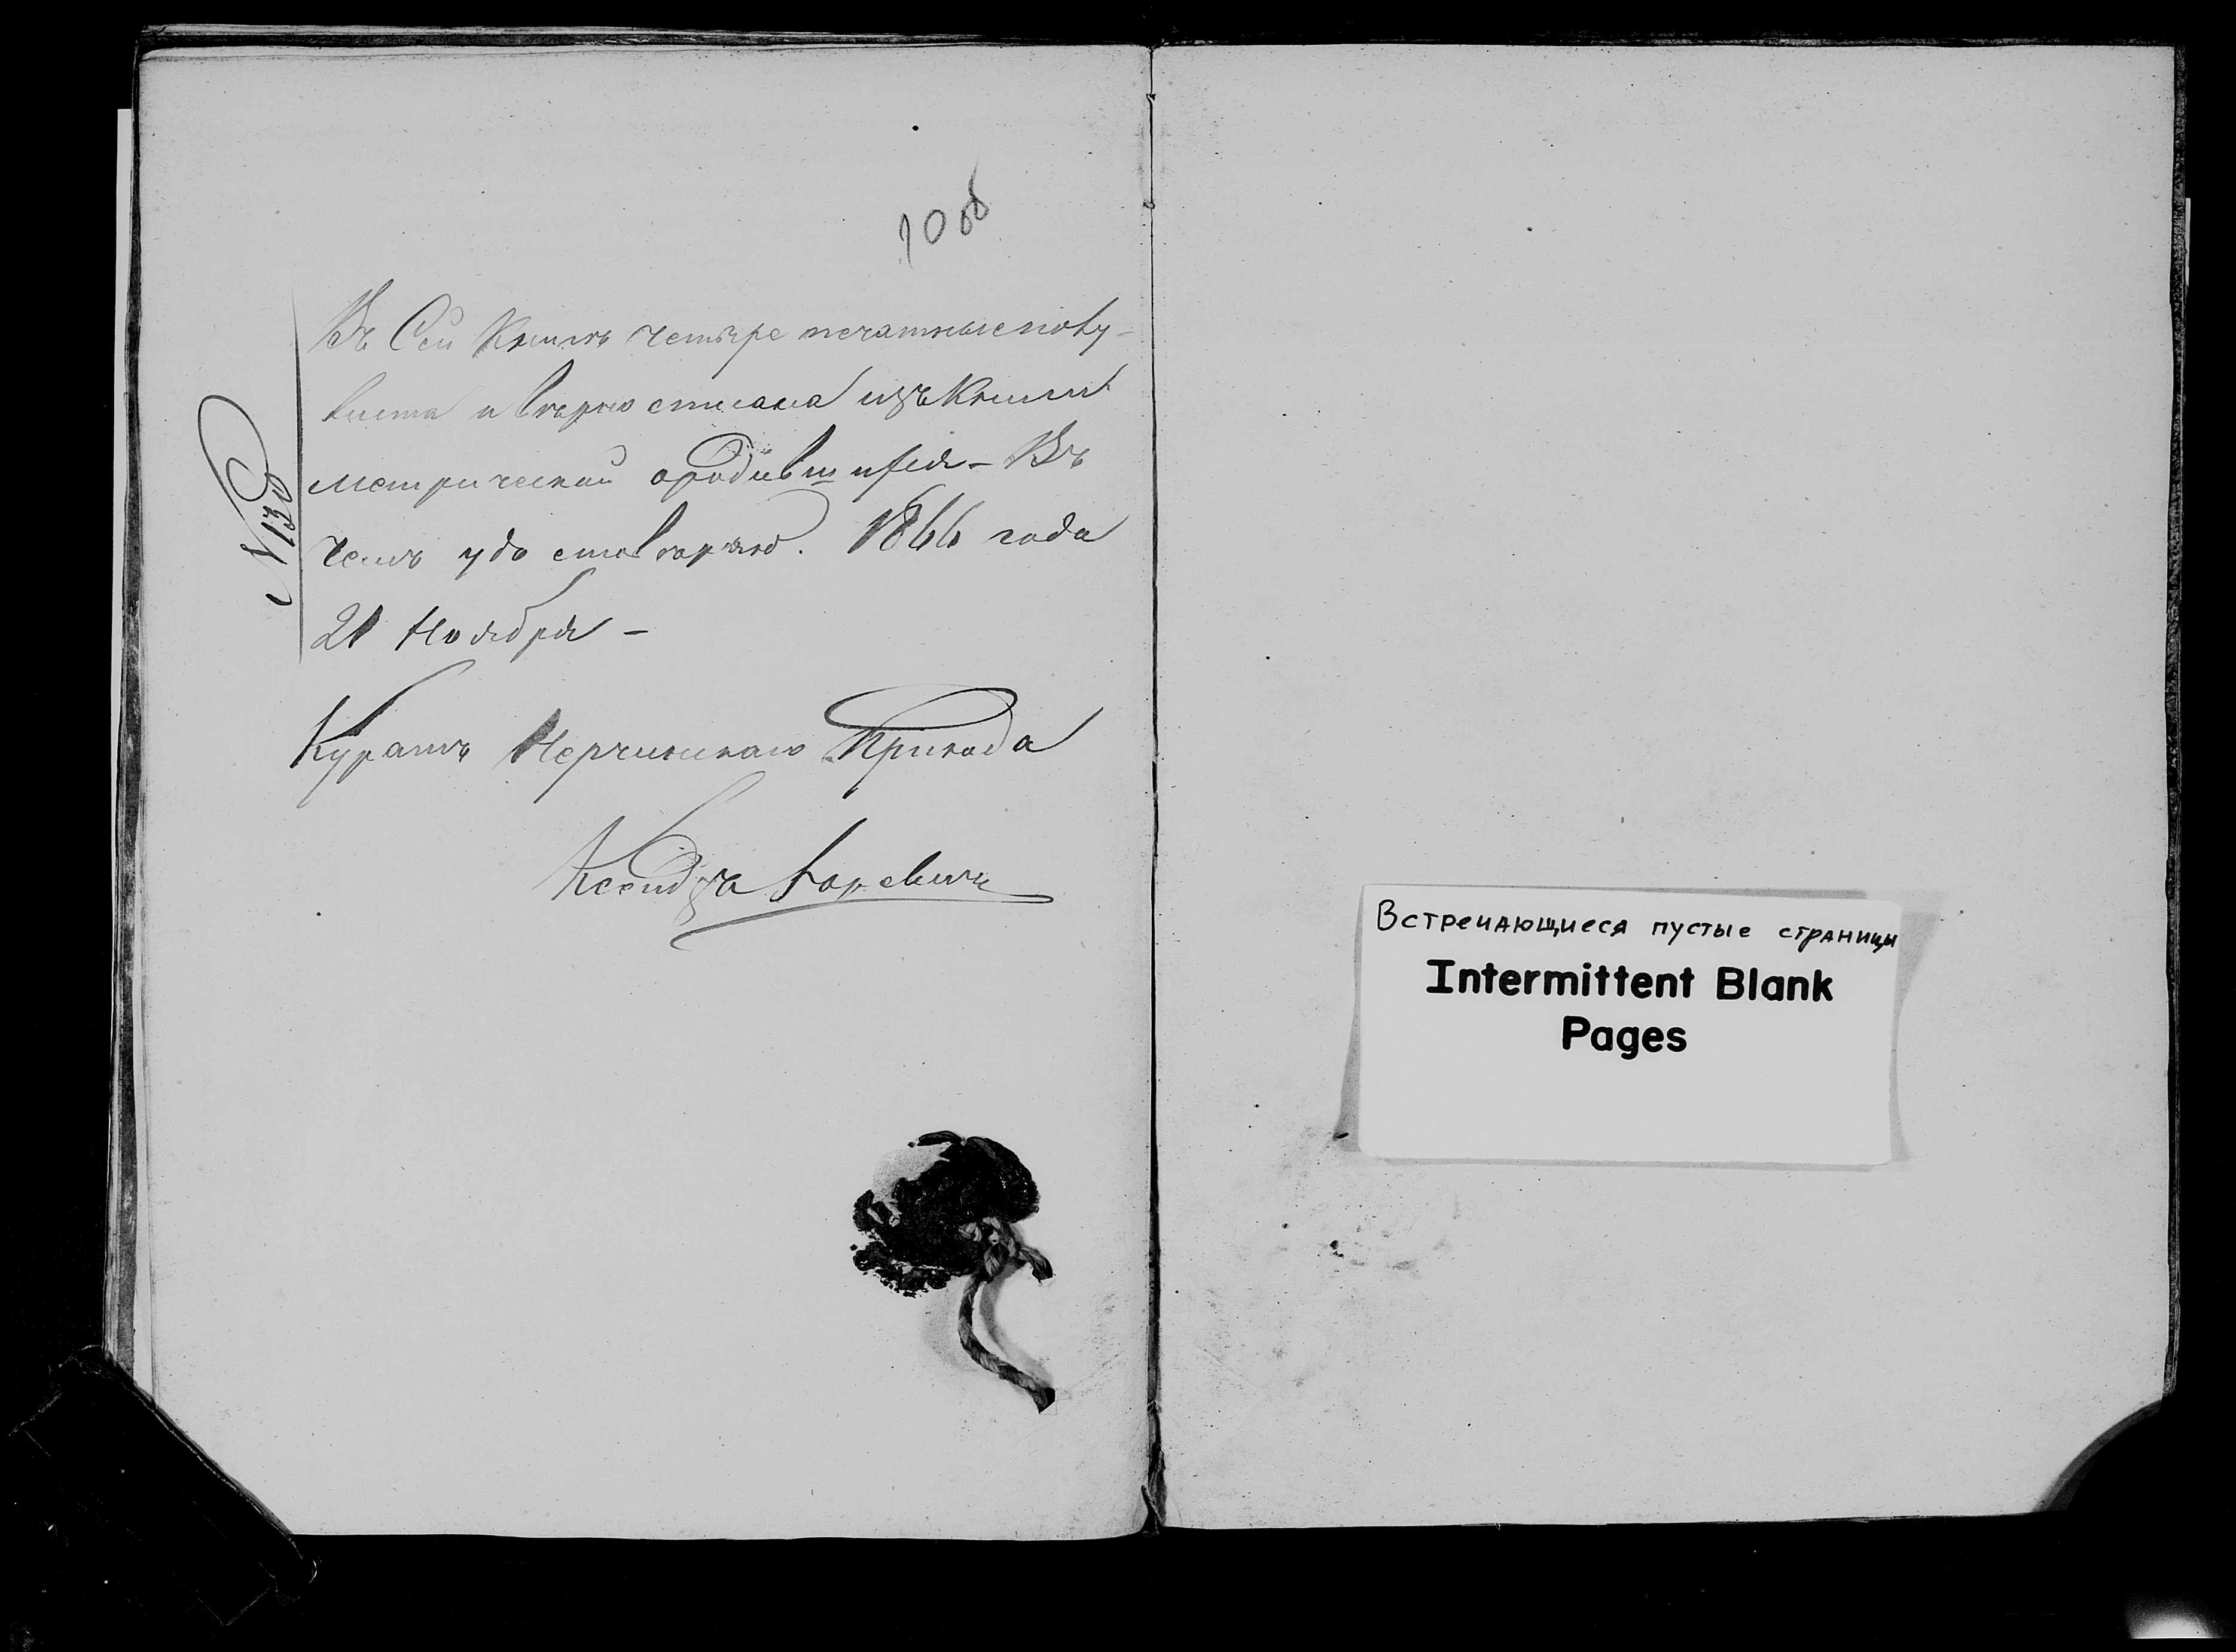 10 об
№ 138
Въ Сей Книгѣ четыре печатные полу-
листа и вѣрно списана изъ Книги
метрической о родившихся – Въ
чемъ удостовѣряю. 1866 года
21 Ноября –
Куратъ Нерчинскаго Прихода
Ксендзъ
Встречающиеся пустые страницы
Intermittent Blank
Pages